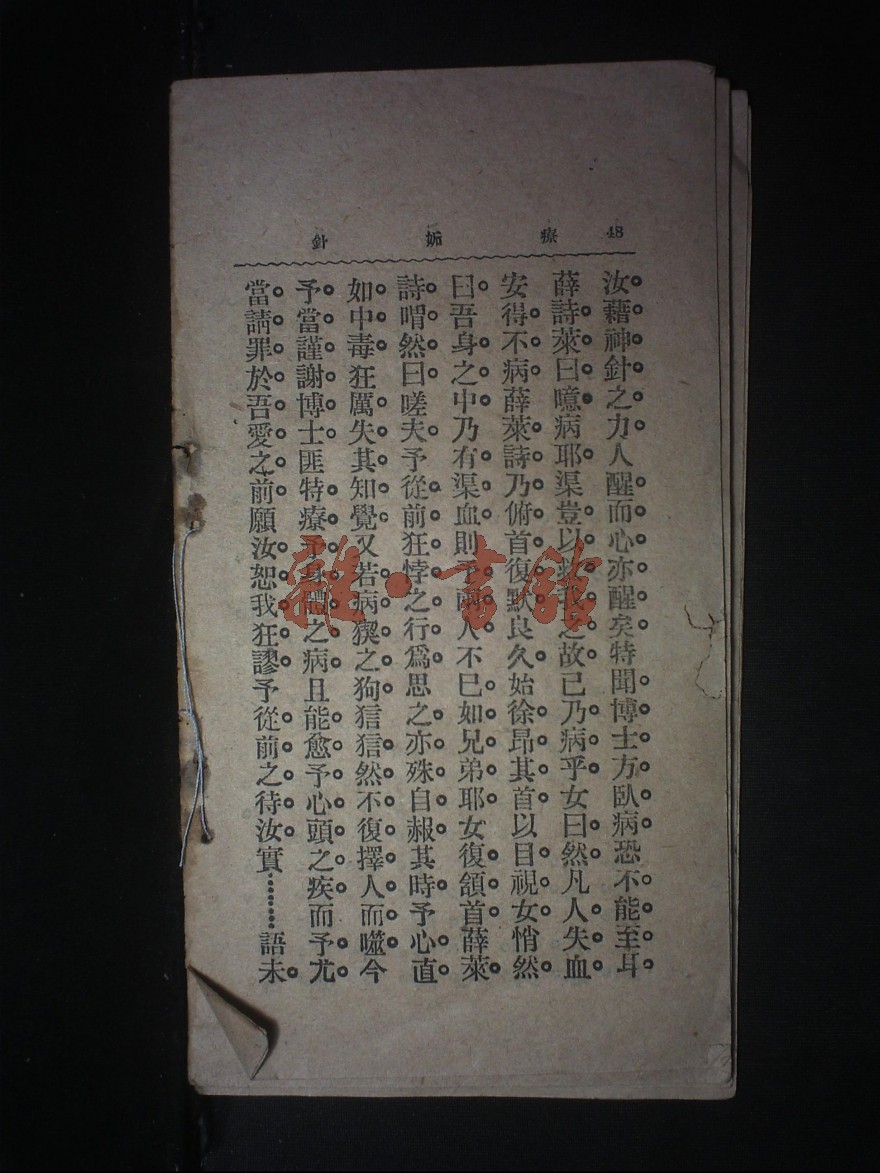 48 療妬針
汝藉神針之力人醒而心亦醒矣特聞博士方臥病恐不能至耳
薛詩萊曰噫病耶渠豈以救我之故己乃病乎女曰然凡人失血
安得不病薛萊詩乃俯首復默良久始徐昂其首以目視女悄然
曰吾身之中乃有渠血則予兩人不巳如兄弟耶女復頷首薛萊
詩喟然曰嗟夫予從前狂悖之行爲思之亦殊自赧其時予心直
如中毒狂厲失其知覺又若病猰之狗狺狺然不復擇人而噬今
予當謹謝博士匪特療予身體之病且能愈予心頭之疾而予尤
當請罪於吾愛之前願汝恕我狂謬予從前之待汝實………語未
雜·書館